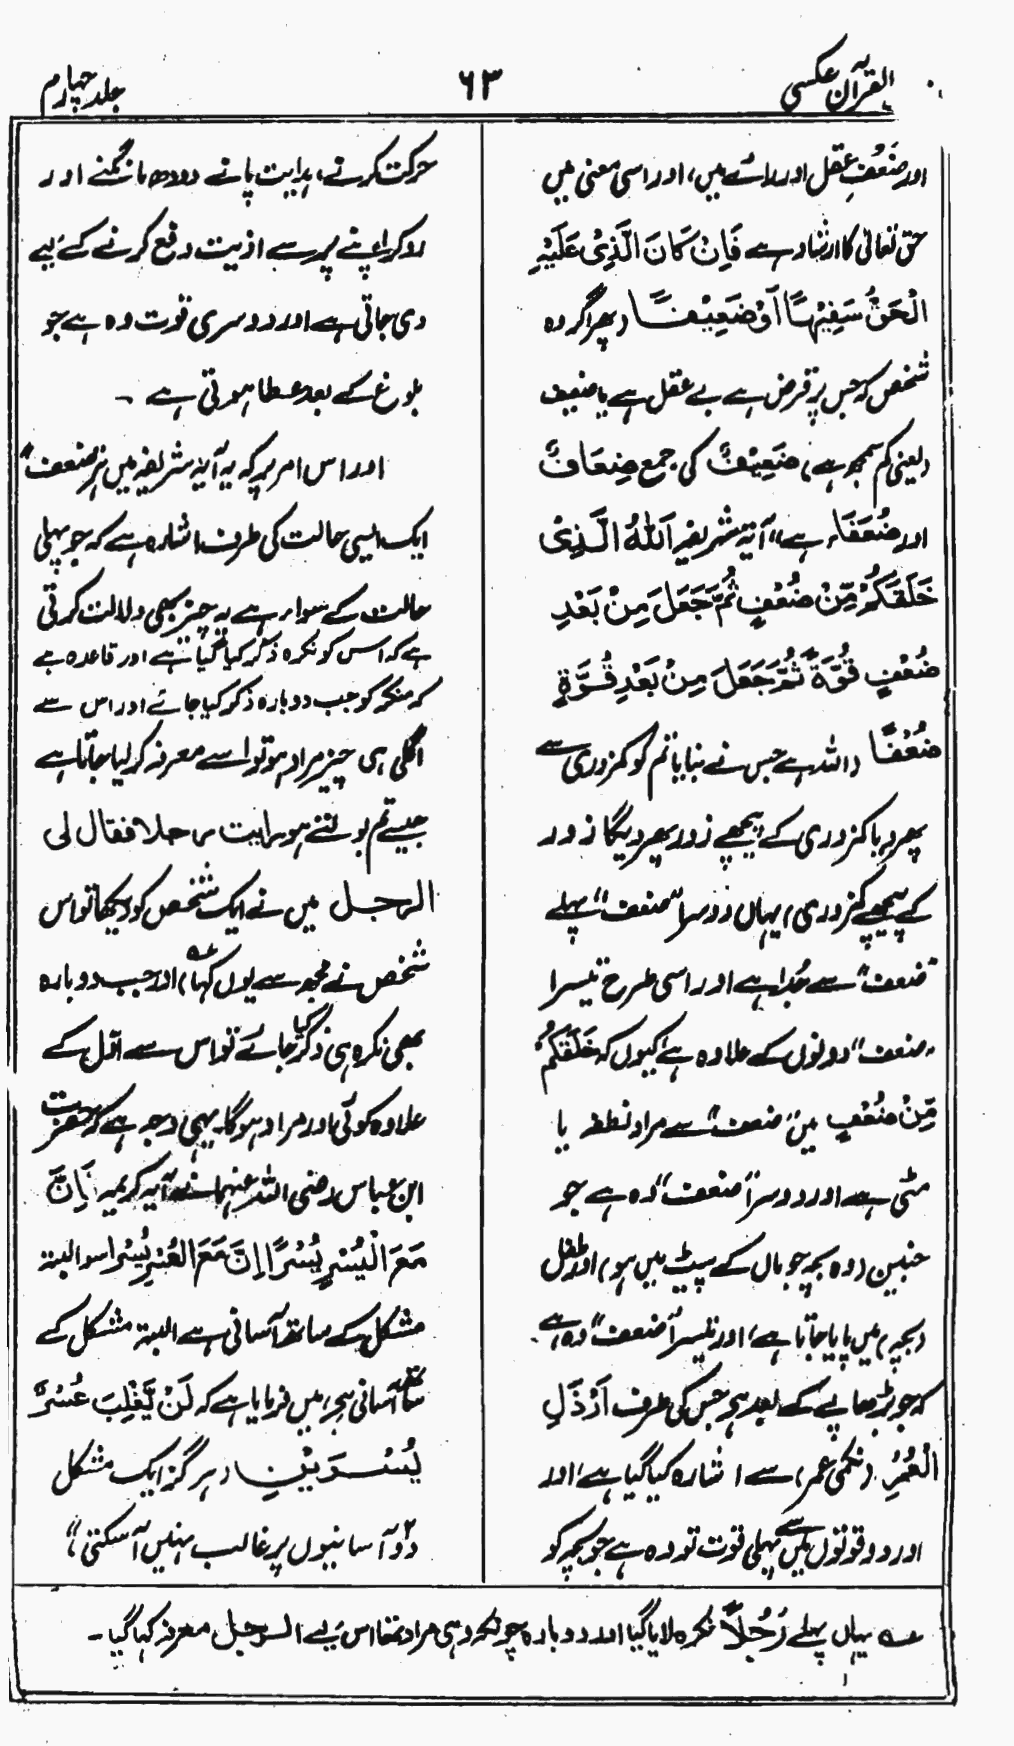 القرآن عکسی
٦٣
جلد چہارم
اور ضَعُفِ عقل اور رائے میں، اور اسی معنی میں
حق تعالیٰ کا ارشاد ہے فَاِنْ كَانَ الَّذِیْ عَلَیْهِ
الْحَقُّ سَفِیْهًا اَوْ ضَعِیْفًا (پھر اگر وہ
شخص کہ جس پر قرض ہے بے عقل ہے یا ضعیف
(یعنی کم سمجھ ہے، ضَعِیْفٌ کی جمع ضِعَافٌ
اور ضُعَفَاءُ ہے" آیۃ شریفہ اَللّٰهُ الَّذِیْ
خَلَقَكُمْ مِّنْ ضُعْفٍ ثُمَّ جَعَلَ مِنْ بَعْدِ
ضُعْفٍ قُوَّةً ثُمَّ جَعَلَ مِنْ بَعْدِ قُوَّةٍ
ضُعْفًا (اللہ ہے جس نے بنایا تم کو کمزوری سے
پھر دیا کمزوری کے پیچھے زور پھر دیگا زور
کے پیچھے کمزوری، یہاں دوسرا "ضعف" پہلے
"ضعف" سے جُدا ہے اور اسی طرح تیسرا
"ضعف" دونوں کے علاوہ ہے کیوں کہ خَلَقَكُمْ
مِّنْ ضُعْفٍ میں "ضعف" سے مراد نطفہ یا
مٹی ہے اور دوسرا "ضعف" وہ ہے جو
جنین (وہ بچہ جو ماں کے پیٹ میں ہو) اور طفل
(بچہ) میں پایا جاتا ہے، اور تیسرا "ضعف" وہ ہے
کہ جو بڑھاپے کے بعد ہے جس کی طرف اَرْذَلِ
الْعُمُرِ (نکمی عمر) سے اشارہ کیا گیا ہے، اور
اور دو قوتوں میں سے پہلی قوت تو وہ ہے جو بچہ کو
حرکت کرنے، ہدایت پانے دودھ مانگنے اور
رو کر اپنے پر سے اذیت دفع کرنے کے لیے
دی جاتی ہے اور دوسری قوت وہ ہے جو
بلوغ کے بعد عطا ہوتی ہے ۔
اور اس امر پر کہ یہ آیۃ شریفہ میں ہر "ضعف"
ایک ایسی حالت کی طرف اشارہ ہے کہ جو پہلی
حالت کے سوا ہے یہ چیز بھی دلالت کرتی
ہے کہ اس کو نکرہ ذکر کیا گیا ہے اور قاعدہ ہے
کہ منکر کو جب دوبارہ ذکر کیا جائے اور اس سے
اگلی ہی چیز مراد ہو تو اسے معرفہ کر لیا جاتا ہے
جیسے تم بولتے ہو رایت رجلا فقال لی
الرجل میں نے ایک شخص کو دیکھا تو اس
شخص نے مجھ سے یوں کہا) عہ اور جب دوبارہ
بھی نکرہ ہی ذکر کیا جائے تو اس سے اول کے
علاوہ کوئی اور مراد ہوگا۔ یہی وجہ ہے کہ حضرت
ابن عباس رضی اللہ عنہما نے آیہ کریمہ اِنَّ
مَعَ الْیُسْرِ یُسْرًا اِنَّ مَعَ الْعُسْرِ یُسْرًا سو البتہ
مشکل کے ساتھ آسانی ہے البتہ مشکل کے
ساتھ آسانی ہے، میں فرمایا ہے کہ لَنْ یَّغْلِبَ عُسْرٌ
یُسْرَیْنِ (ہرگز ایک مشکل
دو آسانیوں پر غالب نہیں آسکتی)"
عہ یہاں پہلے رَجُلاً نکرہ لایا گیا اور دوبارہ چونکہ وہی مراد تھا اس لیے الرجل معرفہ کہا گیا۔